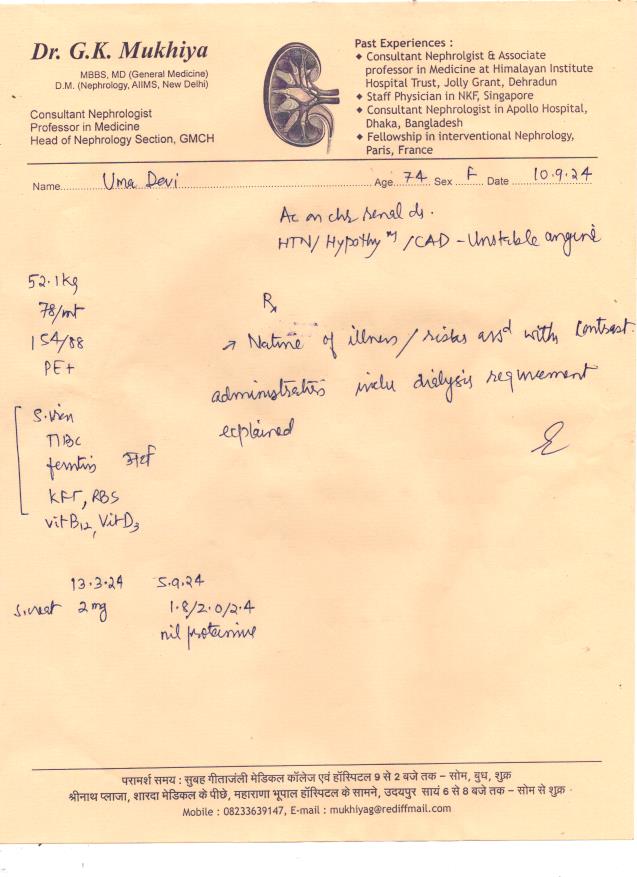 Dr. G.K. Mukhiya
MBBS, MD (General Medicine)
D.M. (Nephrology, AIIMS, New Delhi)
Consultant Nephrologist
Professor in Medicine
Head of Nephrology Section, GMCH
Past Experiences :
◆ Consultant Nephrolgist & Associate
professor in Medicine at Himalayan Institute
Hospital Trust, Jolly Grant, Dehradun
◆ Staff Physician in NKF, Singapore
◆ Consultant Nephrologist in Apollo Hospital,
Dhaka, Bangladesh
◆ Fellowship in interventional Nephrology,
Paris, France
Name Uma Devi Age 74 Sex F Date 10.9.24
Ac on chr renal ds.
HTN/ Hypothy /CAD - Unstable angina
52.1kg
78/mt
154/88
PE+
Rx
→ Nature of illness / risks assd with contrast
administration inclu dialysis requirement
explained
S.iron
TIBC
ferritin
KFT, RBS
vitB12, VitD3
13.3.24 5.9.24
S.creat 2mg 1.8/2.0/2.4
nil proteinuria
परामर्श समय : सुबह गीताजंली मेडिकल कॉलेज एवं हॉस्पिटल 9 से 2 बजे तक – सोम, बुध, शुक्र
श्रीनाथ प्लाजा, शारदा मेडिकल के पीछे, महाराणा भूपाल हॉस्पिटल के सामने, उदयपुर सायं 6 से 8 बजे तक – सोम से शुक्र
Mobile : 08233639147, E-mail : mukhiyag@rediffmail.com